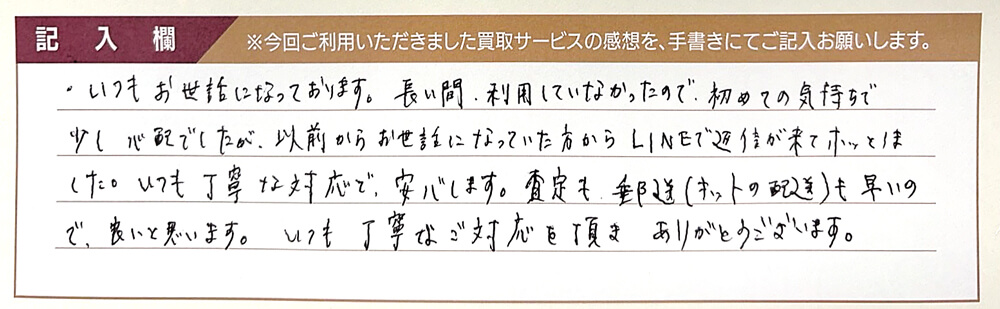 記入欄
※今回ご利用いただきました買取サービスの感想を、手書きにてご記入お願いします。
・いつもお世話になっております。長い間、利用していなかったので、初めての気持ちで
少し心配でしたが、以前からお世話になっていた方からLINEで返信が来てホッとしま
した。いつも丁寧な対応で、安心します。査定も、郵送(ネットの配送)も早いの
で、良いと思います。いつも丁寧なご対応を頂き ありがとうございます。